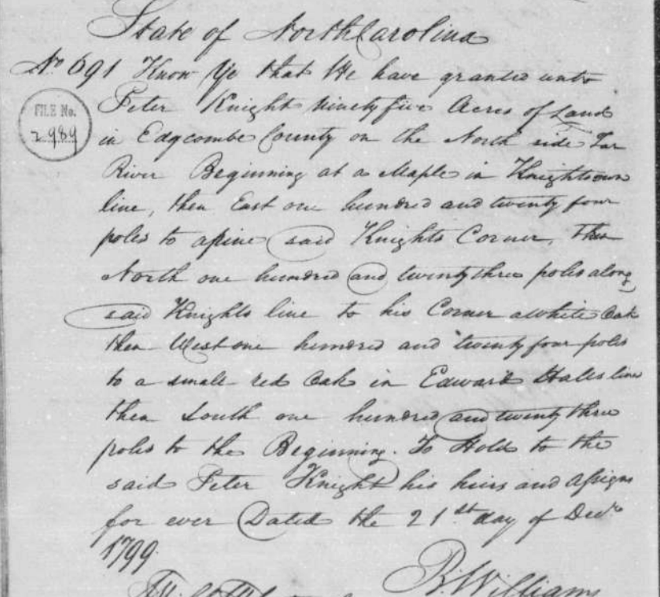 State of North Carolina
No 691 Know Ye that We have granted unto
FILE No.
2989
Peter Knight ninety five Acres of Land
in Edgcombe County on the North side Tar
River Beginning at a Maple in Knights own
line, then East one hundred and twenty four
poles to a pine said Knights Corner, Then
North one hundred and twenty three poles along
said Knights line to his Corner a white Oak
then West one hundred and twenty four poles
to a small red Oak in Edward Halls line
then South one hundred and twenty three
poles to the Beginning. To Hold to the
said Peter Knight his heirs and assigns
for ever Dated the 21st day of Decr
1799
B. Williams